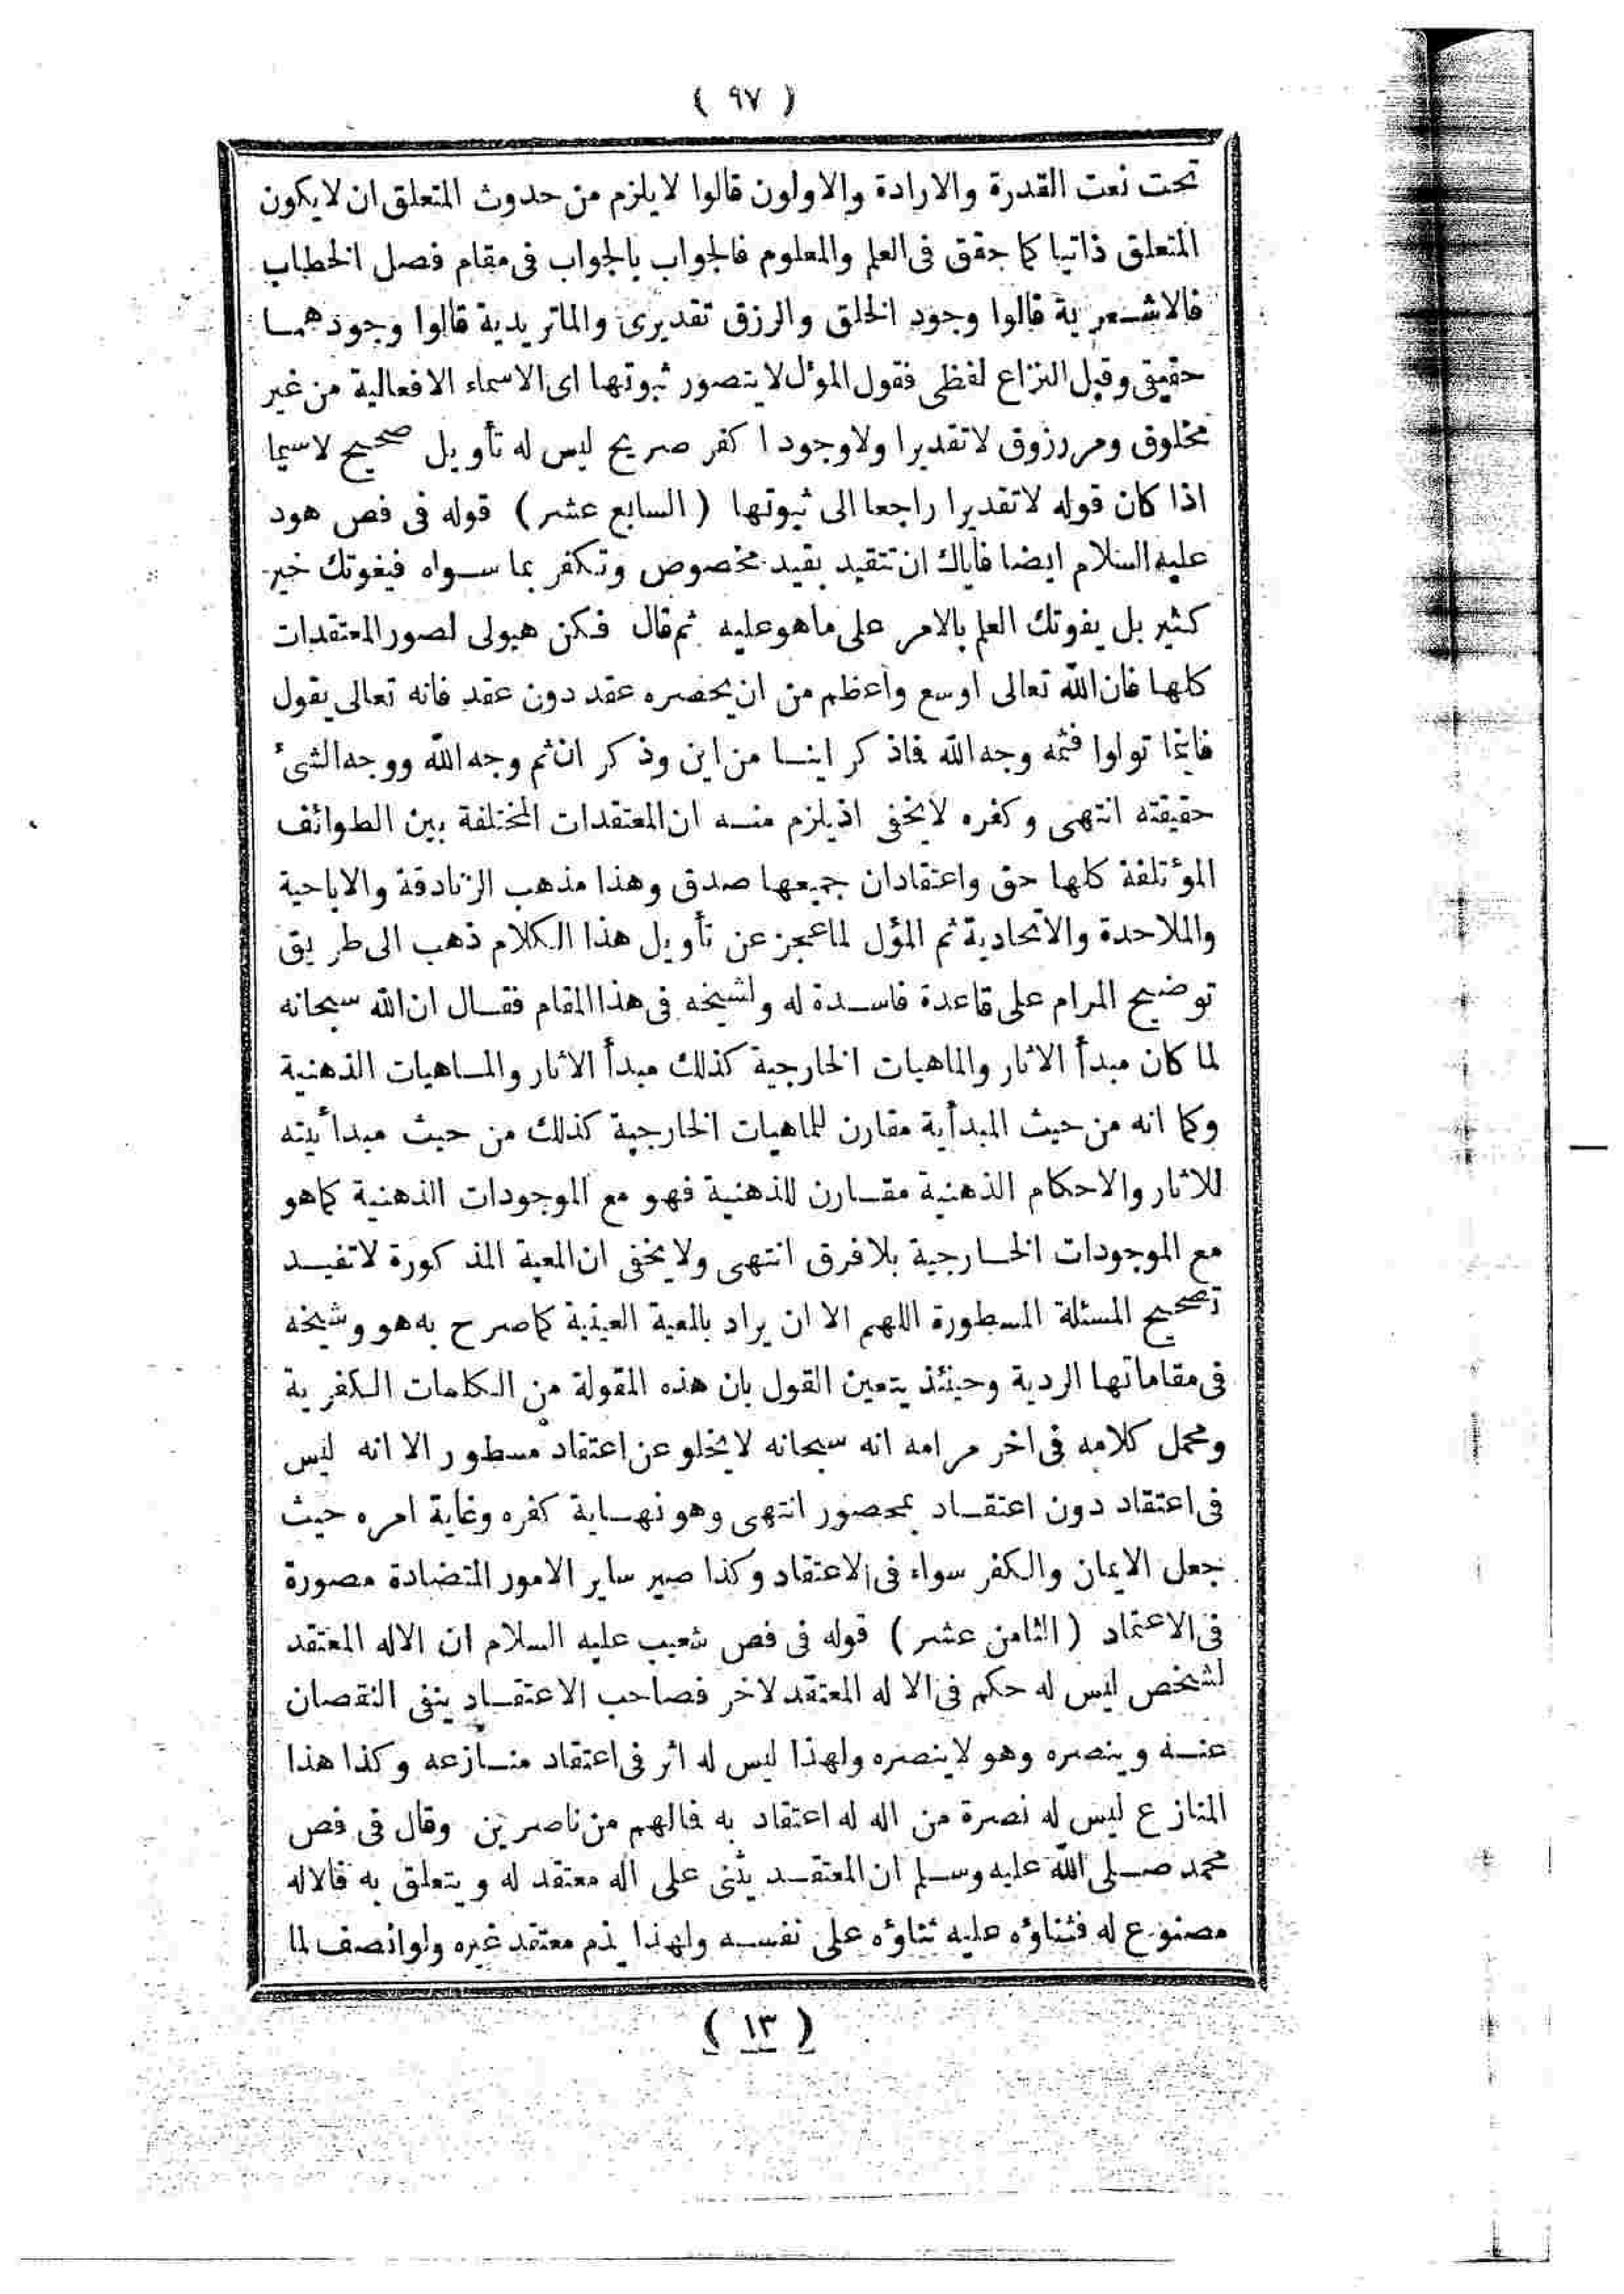 ( ٩٧ )
تحت نعت القدرة والارادة والاولون قالوا لايلزم من حدوث المتعلق ان لايكون
المتعلق ذاتيا كما حقق فى العلم والمعلوم فالجواب بالجواب فى مقام فصل الخطاب
فالاشعرية قالوا وجود الخلق والرزق تقديرى والماتريدية قالوا وجودهما
حقيقى وقيل النزاع لفظى فقول المؤل لا يتصور ثبوتها اى الاسماء الافعالية من غير
مخلوق ومرزوق لا تقديرا ولا وجودا كفر صريح ليس له تأويل صحيح لاسيما
اذا كان قوله لا تقديرا راجعا الى ثبوتها ( السابع عشر ) قوله فى فص هود
عليه السلام ايضا فاياك ان تتقيد بقيد مخصوص وتكفر بما سواه فيفوتك خير
كثير بل يفوتك العلم بالامر على ماهو عليه ثم قال فكن هيولى لصور المعتقدات
كلها فان الله تعالى اوسع واعظم من ان يحصره عقد دون عقد فانه تعالى يقول
فاينما تولوا فثمه وجه الله فاذكر اينا من اين وذكر ان ثم وجه الله ووجه الشئ
حقيقته انتهى وكفره لايخفى اذ يلزم منه ان المعتقدات المختلفة بين الطوائف
المؤتلفة كلها حق واعتقادان جميعها صدق وهذا مذهب الزنادقة والاباحية
والملاحدة والاتحادية ثم المؤل لما عجز عن تأويل هذا الكلام ذهب الى طريق
توضيح المرام على قاعدة فاسدة له ولشيخه فى هذا المقام فقال ان الله سبحانه
لما كان مبدأ الاثار والماهيات الخارجية كذلك مبدأ الاثار والماهيات الذهنية
وكما انه من حيث المبدأية مقارن للماهيات الخارجية كذلك من حيث مبدأيته
للاثار والاحكام الذهنية مقارن للذهنية فهو مع الموجودات الذهنية كماهو
مع الموجودات الخارجية بلا فرق انتهى ولا يخفى ان المعية المذكورة لا تفيد
تصحيح المسئلة المسطورة اللهم الا ان يراد بالمعية العينية كما صرح به هو وشيخه
فى مقاماتها الردية وحينئذ يتعين القول بان هذه المقولة من الكلمات الكفرية
ومحمل كلامه فى اخر مرامه انه سبحانه لا يخلو عن اعتقاد مسطور الا انه ليس
فى اعتقاد دون اعتقاد بمحصور انتهى وهو نهاية كفره وغاية امره حيث
جعل الايمان والكفر سواء فى الاعتقاد وكذا صير ساير الامور المتضادة مصورة
فى الاعتماد ( الثامن عشر ) قوله فى فص شعيب عليه السلام ان الاله المعتقد
لشخص ليس له حكم فى الاله المعتقد لاخر فصاحب الاعتقاد ينفى النقصان
عنه وينصره وهو لاينصره ولهذا ليس له اثر فى اعتقاد منازعه وكذا هذا
المنازع ليس له نصرة من اله له اعتقاد به فالهم من ناصرين وقال فى فص
محمد صلى الله عليه وسلم ان المعتقد يثنى على اله معتقد له ويتعلق به فالاله
مصنوع له فثناؤه عليه ثناؤه على نفسه ولهذا يذم معتقد غيره ولو انصف لما
( ١٣ )